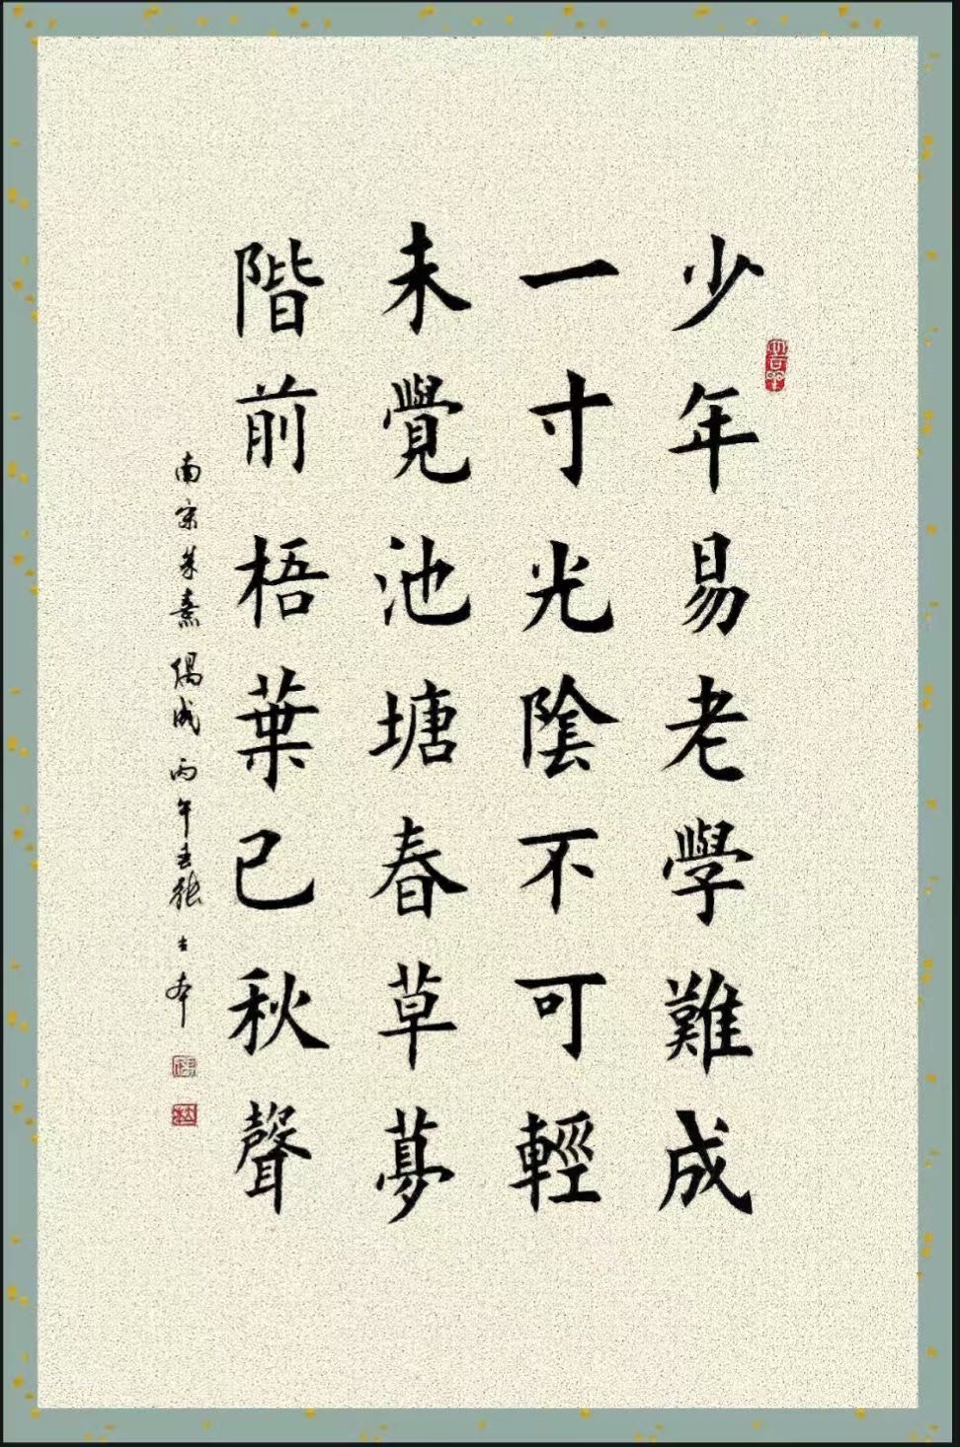 少年易老學難成
一寸光陰不可輕
未覺池塘春草夢
階前梧葉已秋聲
南宋朱熹偶成丙午 張士本